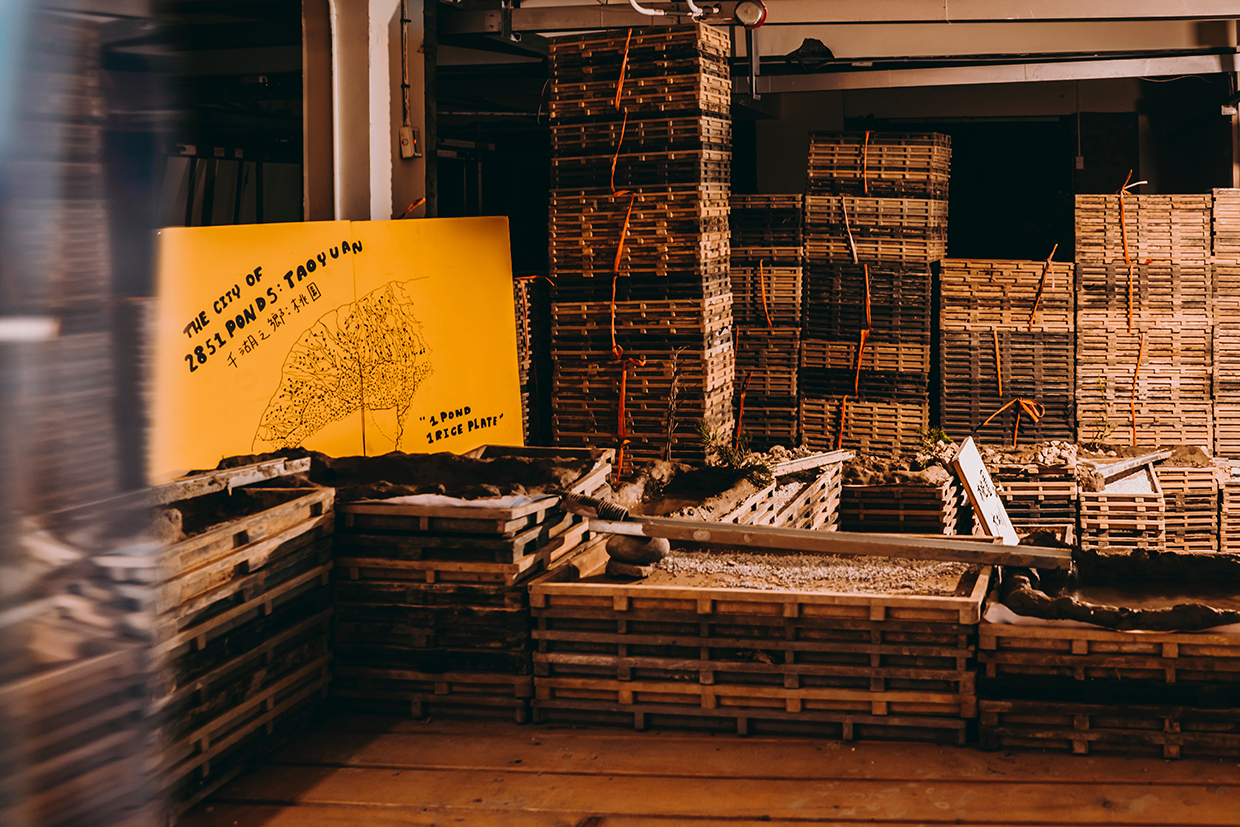 THE CITY OF
2851 PONDS: TAOYUAN
千湖之鄉: 桃園
"1 POND
1 RICE PLATE"